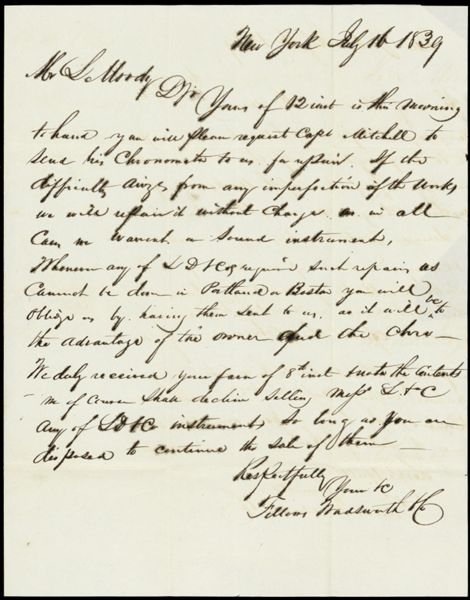 New York July 16 1839
Mr L Moody
Dr Yours of 12 inst is this morning
to hand you will please request Capt Mitchell to
send his Chronometer to us for repair. If the
difficulty arizes from any imperfection of the works
we will repair it without charge. as in all
Cases we warrant a sound instrument.
Whenever any of L D & Co require such repairs as
Cannot be done in Portland or Boston you will
oblige us by having them sent to us. as it will be to
the advantage of the owner and the Chro—
We duly received your favor of 8th inst note the contents
we of Course shall decline selling Messrs L & C
any of L D & Co instruments so long as you are
disposed to continue the sale of them —
Respectfully
Your &c
Fellows Wadsworth & Co